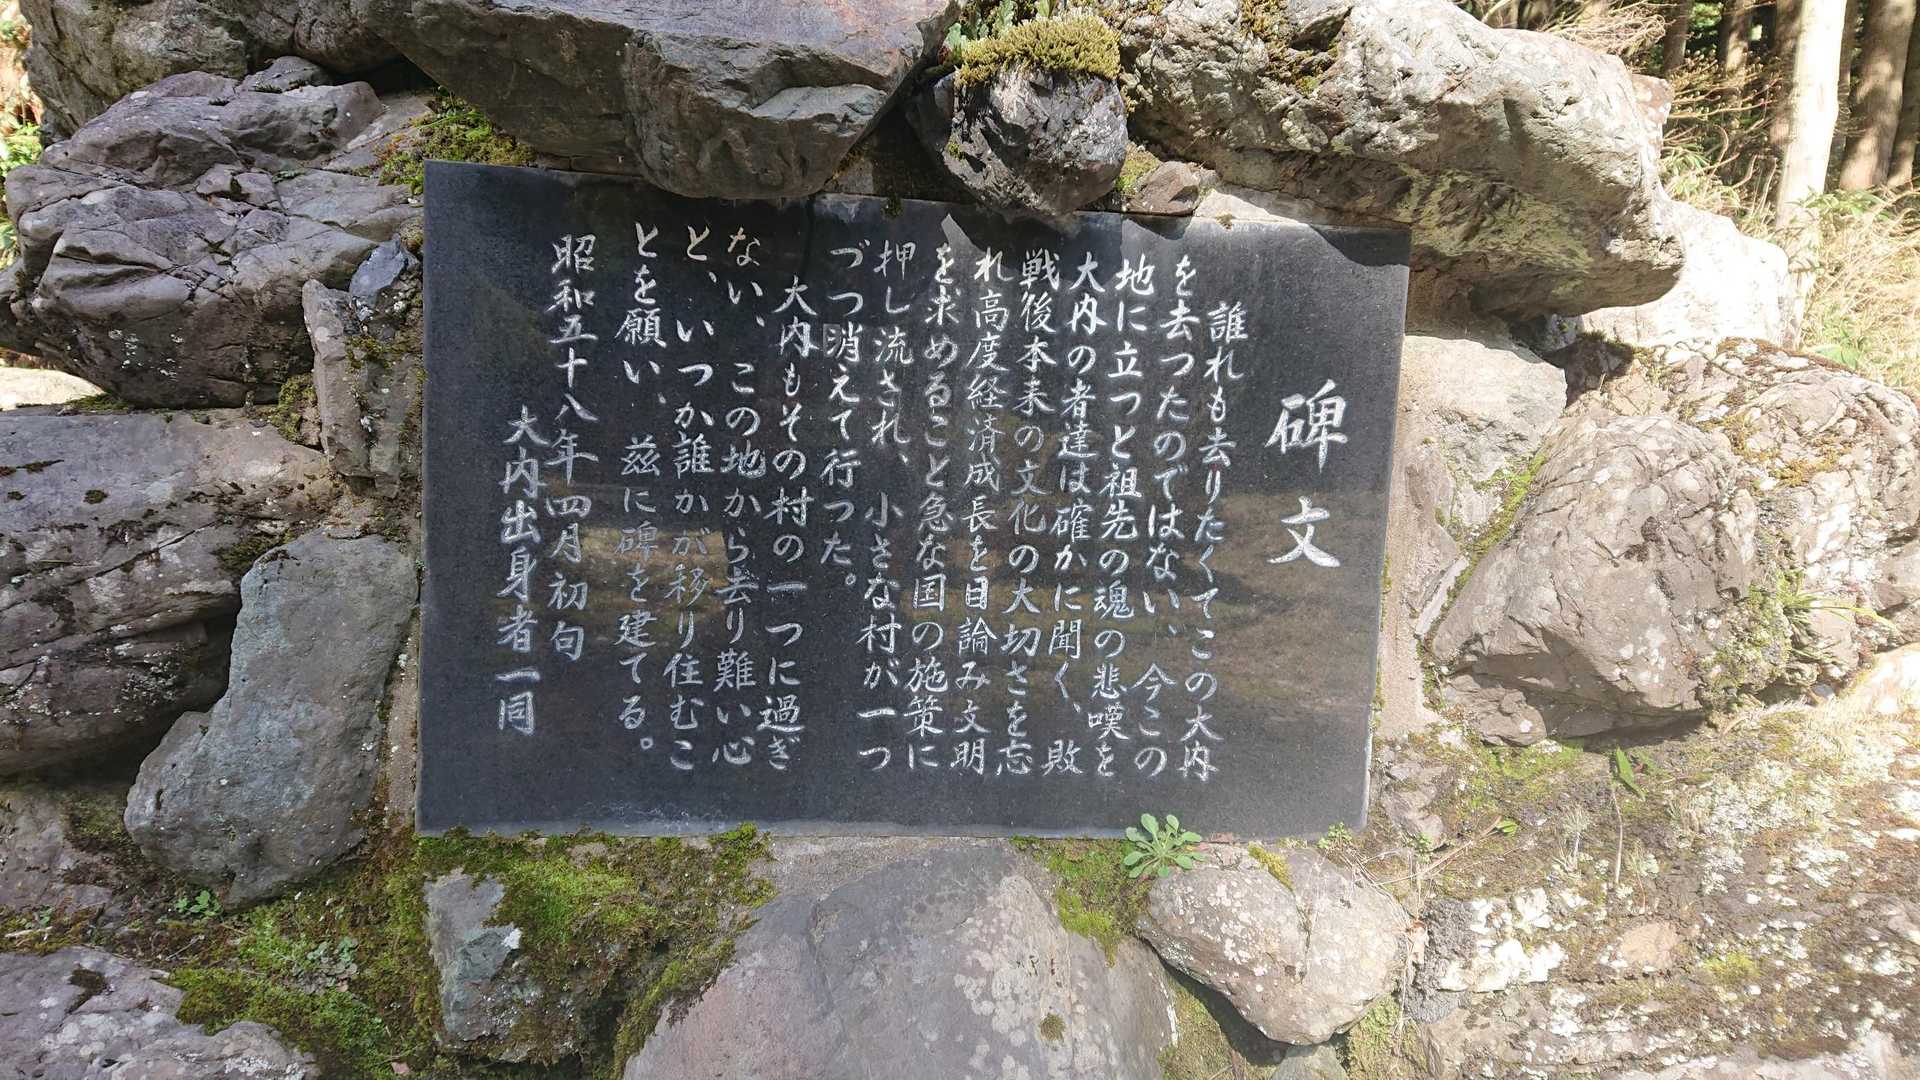 碑文
誰れも去りたくてこの大内
を去つたのではない、今この
地に立つと祖先の魂の悲嘆を
大内の者達は確かに聞く、敗
戦後本来の文化の大切さを忘
れ高度経済成長を目論み文明
を求めること急な国の施策に
押し流され、小さな村が一つ
づつ消えて行つた。
大内もその村の一つに過ぎ
ない、この地から去り難い心
と、いつか誰かが移り住むこ
とを願い、茲に碑を建てる。
昭和五十八年四月初旬
大内出身者一同